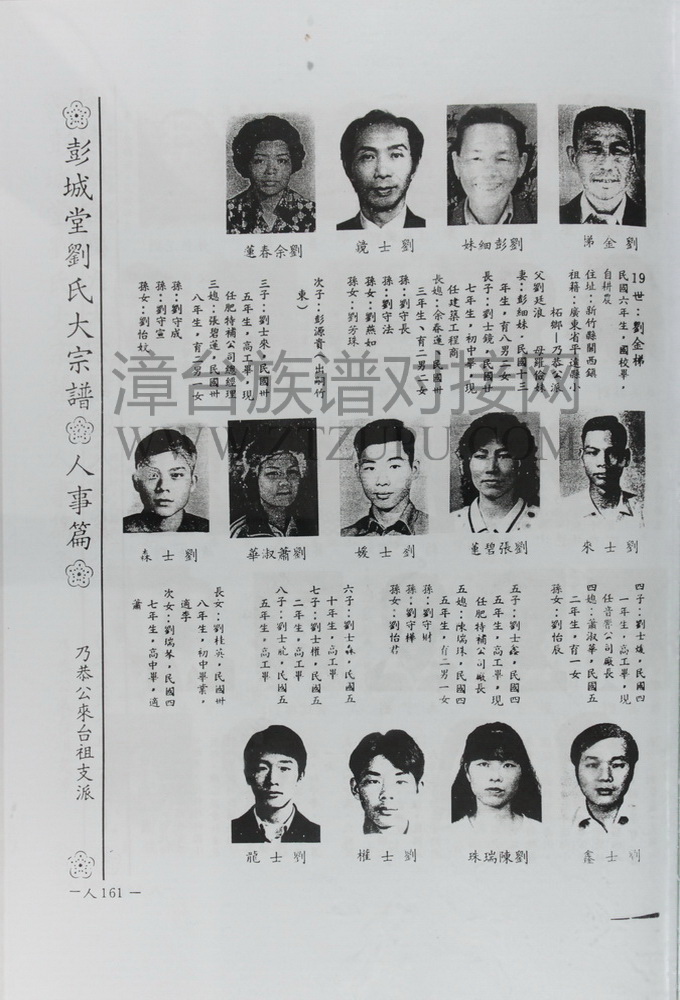 彭城堂劉氏大宗譜
人事篇
乃恭公來台祖支派
劉金梯
劉彭細妹
劉士鏡
劉余春蓮
19世：劉金梯
民國六年生，國校畢，
自耕農
住址：新竹縣關西鎮
祖籍：廣東省平遠縣小
柘鄉—乃恭公派
父劉廷浪　母羅儉妹
妻：彭細妹，民國十三
年生，育八男二女
長子：劉士鏡，民國卅
七年生，初中畢，現
任建築工程商
長媳：余春蓮，民國卅
三年生，育二男二女
孫：劉守長
孫：劉守法
孫女：劉燕如
孫女：劉芳珠
次子：彭源貴（出嗣竹
東）
三子：劉士來，民國卅
五年生，高工畢，現
任肥特補公司總經理
三媳：張碧蓮，民國卅
八年生，育二男一女
孫：劉守成
孫：劉守宣
孫女：劉怡妏
漳台族谱对接网
WWW.ZTZUPU.COM
劉士來
劉張碧蓮
劉士媛
劉蕭淑華
劉士森
四子：劉士媛，民國四
一年生，高工畢，現
任音響公司廠長
四媳：蕭淑華，民國五
二年生，育一女
孫女：劉怡辰
五子：劉士鑫，民國四
五年生，高工畢，現
任肥特補公司廠長
五媳：陳瑞珠，民國四
五年生，育二男一女
孫：劉守財
孫：劉守樺
孫女：劉怡君
六子：劉士森，民國五
十年生，高工畢
七子：劉士權，民國五
二年生，高工畢
八子：劉士龍，民國五
五年生，高工畢
長女：劉桂英，民國卅
八年生，初中畢業，
適季
次女：劉瑞琴，民國四
七年生，高中畢，適
蕭
劉士鑫
劉陳瑞珠
劉士權
劉士龍
—人161—